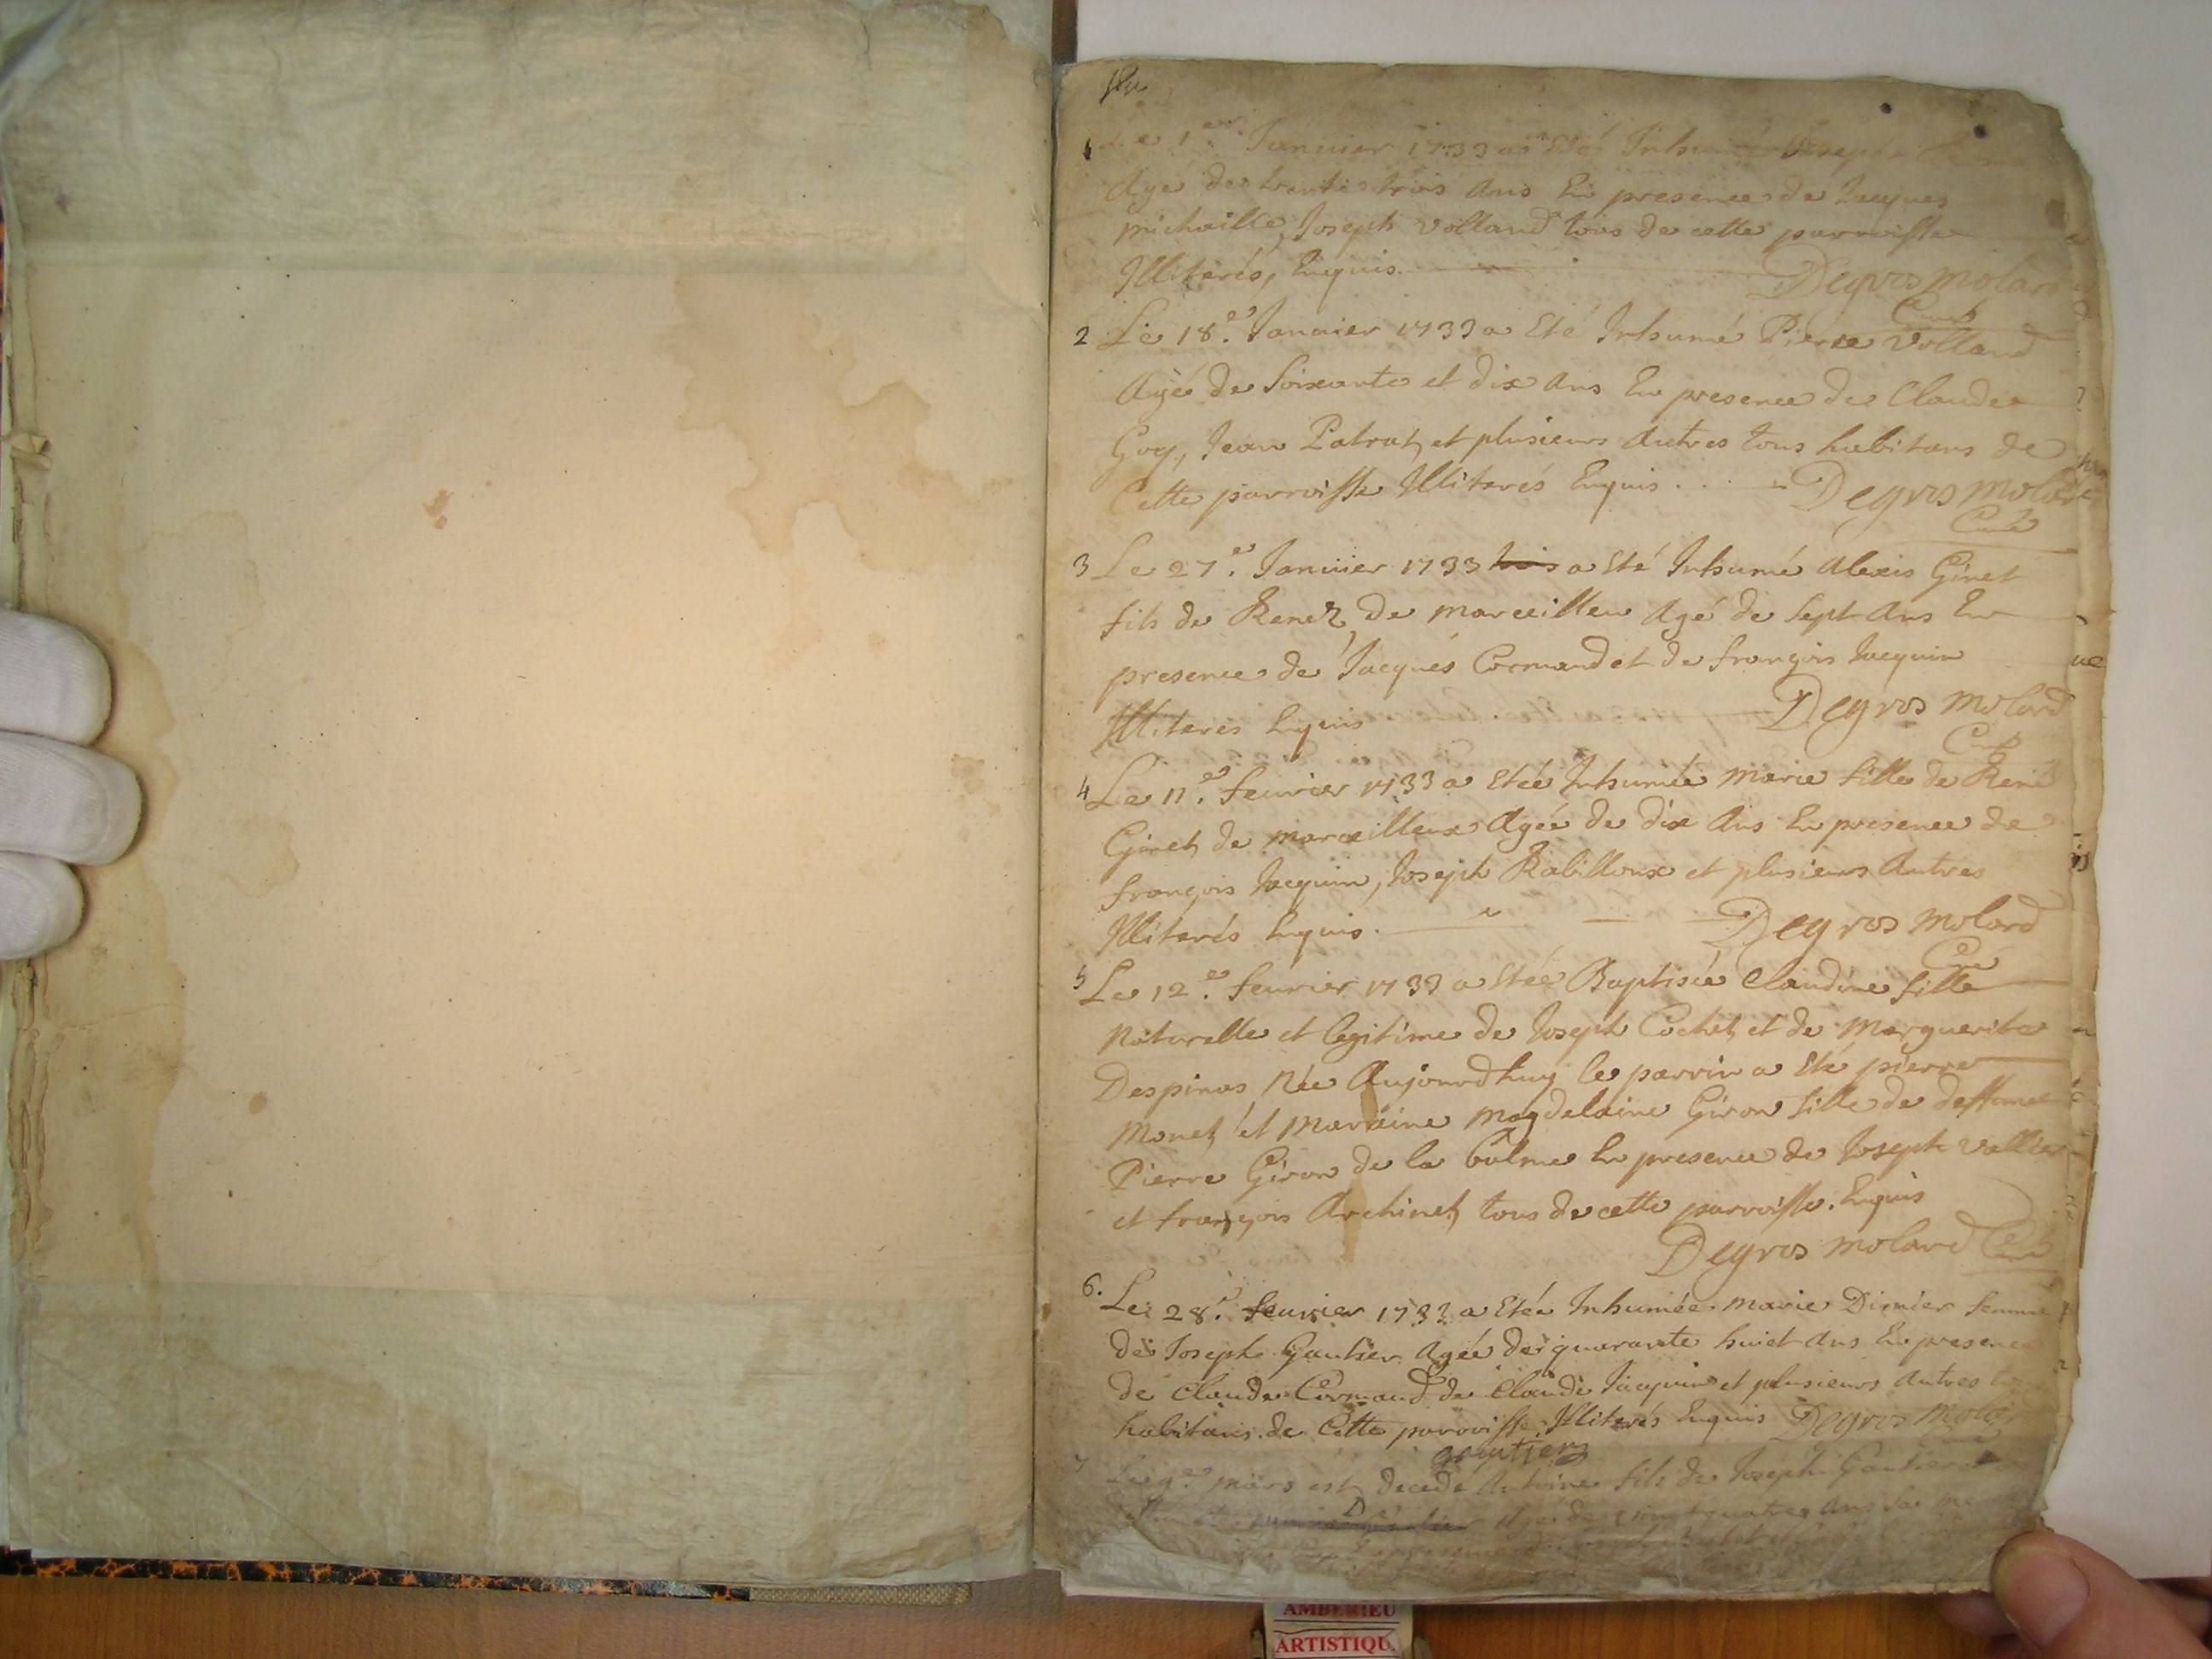 1 Le 1er Januier 1733 a Eté Inhumé Joseph
Agé de trente trois ans En presence de Jacques
michaille, Joseph Volland tous de cette parroisse
Illiterés, Enquis. Degros Molard
Curé
2 Le 18.e Januier 1733 a Eté Inhumé Pierre Volland
Agé de Soixante et dix ans En presence de Claude
Goy, Jean Patrat, et plusieurs Autres tous habitans de
Cette parroisse Illiterés Enquis . . . Degros Molard
Curé
3 Le 27.e Januier 1733 a Eté Inhumé Alexis Ginet
fils de René, de marceilleu Agé de Sept Ans En
presence de Jacques Cormand et de françois Jacquin
Illiterés Enquis Degros Molard
Curé
4 Le 11.e feurier 1733 a Etée Inhumée Marie fille de René
Ginet de marceilleux Agée de dix Ans En presence de
françois Jacquin, Joseph Rabilloux et plusieurs Autres
Illiterés Enquis. Degros Molard
Curé
5 Le 12.e feurier 1733 a Etée Baptisée Claudine fille
Naturelle et legitime de Joseph Cochet et de Marguerite
Despinas Née Aujourdhuy le parrin a Eté pierre
Monet, et Maraine Magdelaine Giron fille de deffunct
Pierre Giron de la balme En presence de Joseph Vallier
et françois Archinet, tous de cette parroisse. Enquis
Degros Molard Curé
6. Le 28.e feurier 1733 a Etée Inhumée Marie Dimier femme
de Joseph Gautier Agée de quarante huict Ans En presence
de Claude Cormand, de Claude Jacquin et plusieurs Autres
habitans de Cette parroisse Illiterés Enquis Degros Molard
gautier
7 Le 9.e Mars est decedé Antoine fils de Joseph Gautier
Agé de quatre Ans
En presence
AMBERIEU
ARTISTIQU